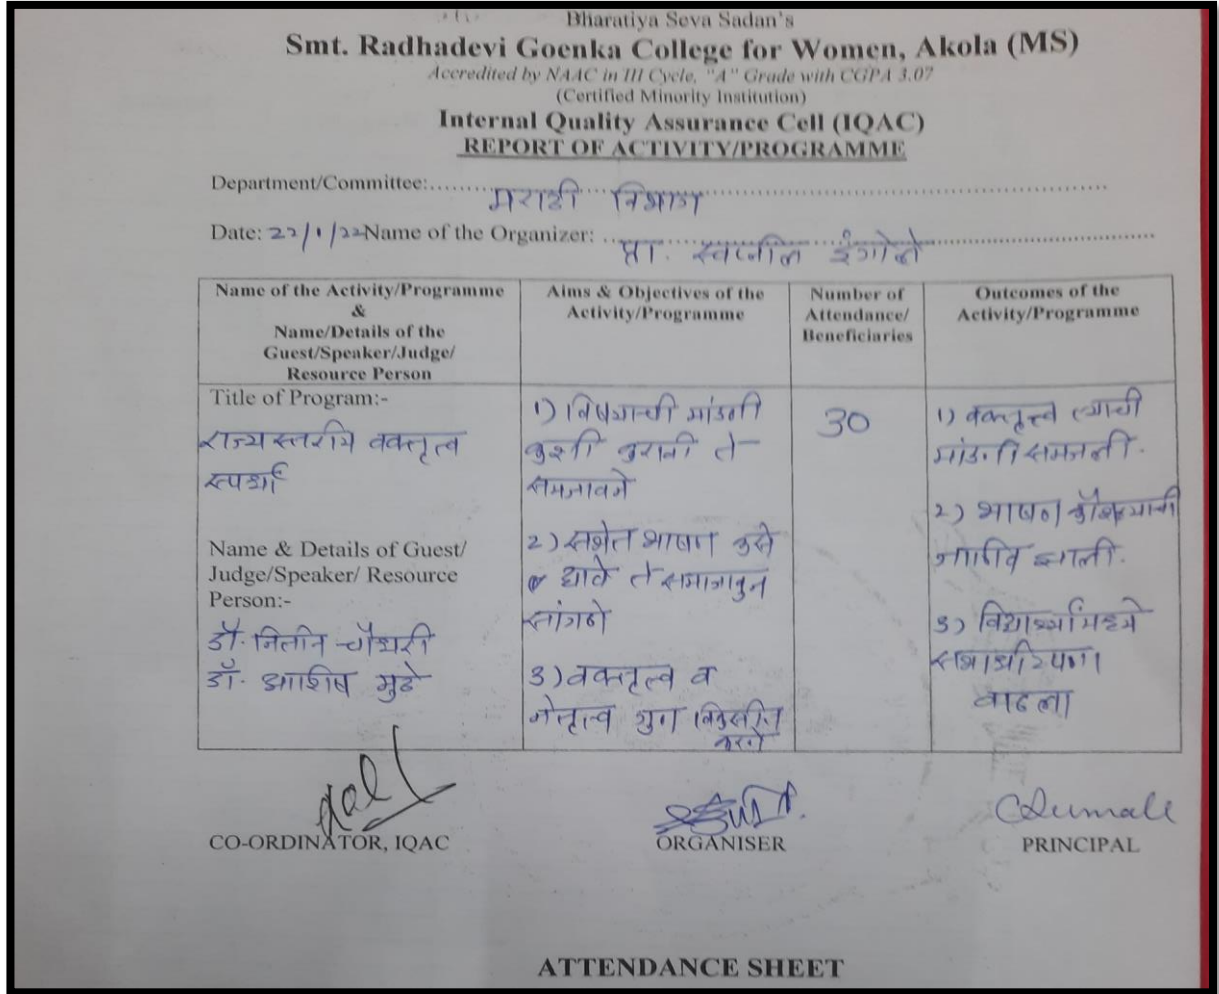 Bharatiya Seva Sadan's
Smt. Radhadevi Goenka College for Women, Akola (MS)
Accredited by NAAC in III Cycle, "A" Grade with CGPA 3.07
(Certified Minority Institution)
Internal Quality Assurance Cell (IQAC)
REPORT OF ACTIVITY/PROGRAMME
Department/Committee: मराठी विभाग
Date: 22/1/22 Name of the Organizer: प्रा. स्वप्नील इंगोले
Name of the Activity/Programme
&
Name/Details of the
Guest/Speaker/Judge/
Resource Person
Aims & Objectives of the
Activity/Programme
Number of
Attendance/
Beneficiaries
Outcomes of the
Activity/Programme
Title of Program:-
राज्यस्तरीय वक्तृत्व
स्पर्धा
Name & Details of Guest/
Judge/Speaker/ Resource
Person:-
डॉ. नितीन चौधरी
डॉ. आशिष मुढे
1) विषयाची मांडणी
कशी करावी ते
समजावणे
2) सभेत भाषण कसे
द्यावे ते समाजावुन
सांगणे
3) वक्तृत्व व
नेतृत्व गुण विकसीत
करणे
30
1) वक्तृत्त्व त्याची
मांडणी समजली.
2) भाषण कौशल्याची
जाणीव झाली.
3) विद्यार्थ्यांमध्ये
सभाधीटपणा
वाढला
CO-ORDINATOR, IQAC
ORGANISER
PRINCIPAL
ATTENDANCE SHEET